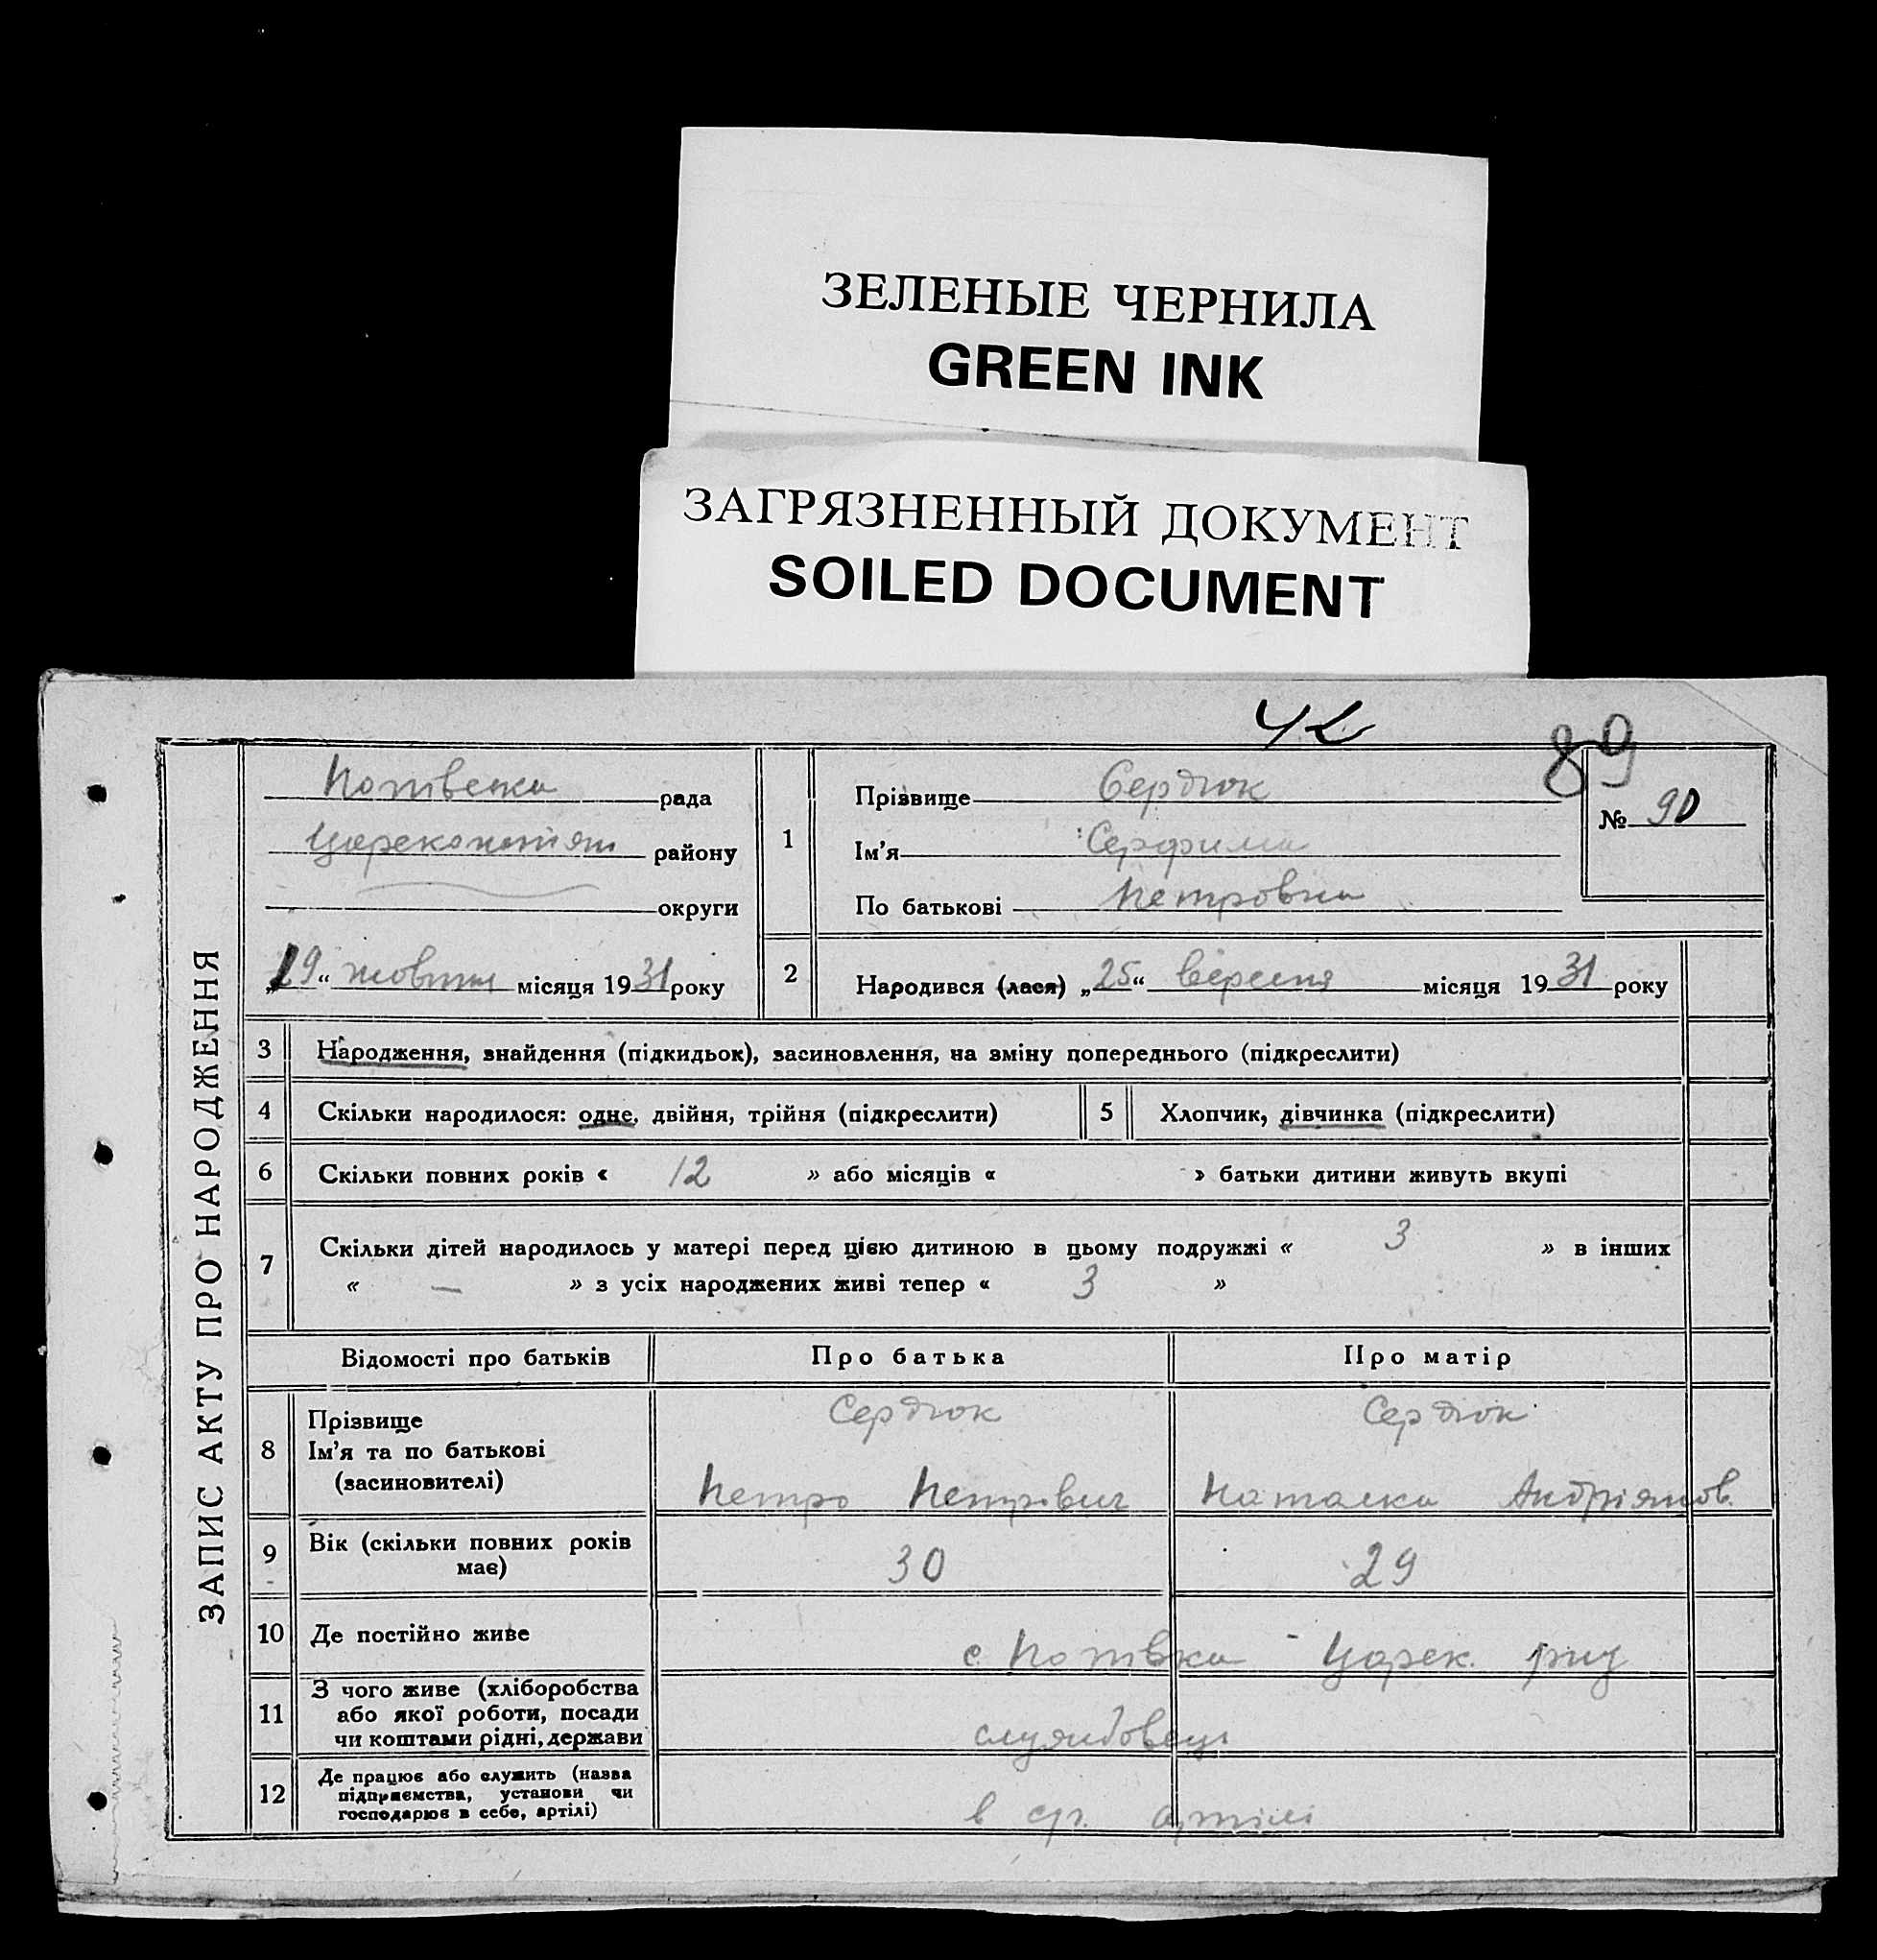 ЗЕЛЕНЫЕ ЧЕРНИЛА
GREEN INK
ЗАГРЯЗНЕННЫЙ ДОКУМЕНТ
SOILED DOCUMENT
42
89
ЗАПИС АКТУ ПРО НАРОДЖЕННЯ
рада
району
округи
„19“ жовтня місяця 1931 року
1
Прізвище Сердюк
Ім'я Серафима
По батькові Петровна
№ 90
2
Народився (лася) „25“ вересня місяця 1931 року
3 Народження, знайдення (підкидьок), засиновлення, на зміну попереднього (підкреслити)
4 Скільки народилося: одне, двійня, трійня (підкреслити) 5 Хлопчик, дівчинка (підкреслити)
6 Скільки повних років « 12 » або місяців « - » батьки дитини живуть вкупі
7 Скільки дітей народилось у матері перед цією дитиною в цьому подружжі « 3 » в інших
« — » з усіх народжених живі тепер « 3 »
Відомості про батьків Про батька Про матір
8 Прізвище
Ім'я та по батькові
(засиновителі)
Сердюк Сердюк
Петро Петрович Наталка Андріянов.
9 Вік (скільки повних років
має)
30 29
10 Де постійно живе
с. Потівка - Царек. рну
11 З чого живе (хліборобства
або якої роботи, посади
чи коштами рідні, держави
службовець
12 Де працює або служить (назва
підприємства, установи чи
господарює в себе, артілі)
в с/г. артілі